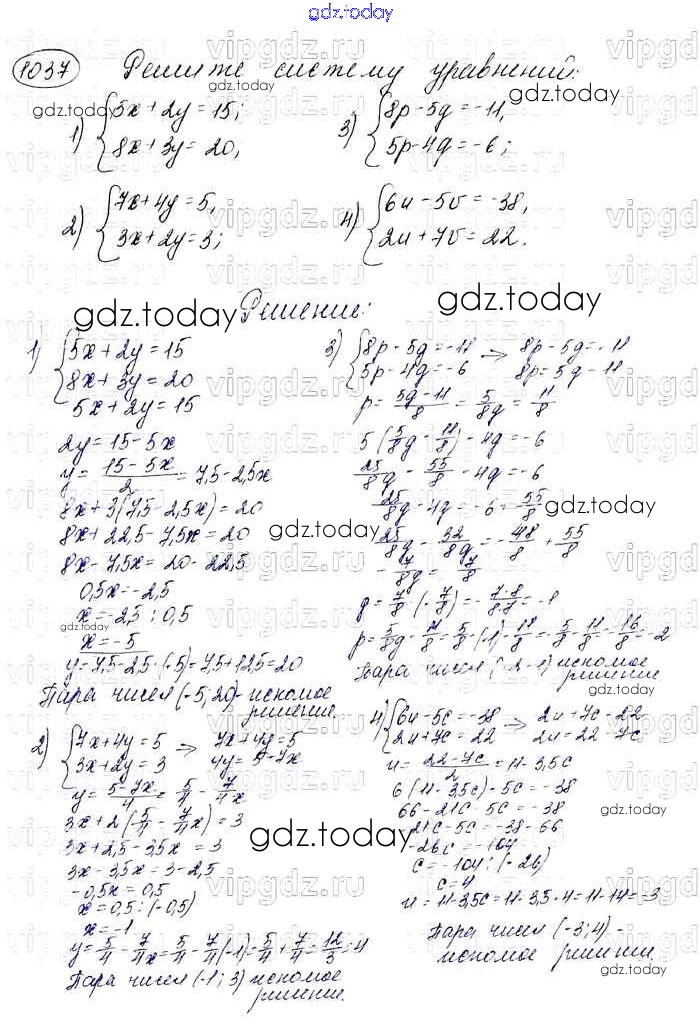 gdz.today
1037 Решите систему уравнений:
1) {5x + 2y = 15;
8x + 3y = 20,
2) {7x + 4y = 5,
3x + 2y = 3;
3) {8p - 5q = -11,
5p - 4q = -6;
4) {6u - 5v = -38,
2u + 7v = 22.
Решение:
1) {5x + 2y = 15
8x + 3y = 20
5x + 2y = 15
2y = 15 - 5x
y = (15 - 5x)/2 = 7,5 - 2,5x
8x + 3(7,5 - 2,5x) = 20
8x + 22,5 - 7,5x = 20
8x - 7,5x = 20 - 22,5
0,5x = -2,5
x = -2,5 : 0,5
x = -5
y = 7,5 - 2,5 · (-5) = 7,5 + 12,5 = 20
Пара чисел (-5; 20) - искомое
решение.
2) {7x + 4y = 5 → 7x + 4y = 5
3x + 2y = 3 4y = 5 - 7x
y = (5 - 7x)/4 = 5/4 - 7/4x
3x + 2(5/4 - 7/4x) = 3
3x + 2,5 - 3,5x = 3
3x - 3,5x = 3 - 2,5
-0,5x = 0,5
x = 0,5 : (-0,5)
x = -1
y = 5/4 - 7/4x = 5/4 - 7/4(-1) = 5/4 + 7/4 = 12/3 = 4
Пара чисел (-1; 3) искомое
решение.
3) {8p - 5q = -11 → 8p - 5q = -11
5p - 4q = -6 8p = 5q - 11
p = (5q - 11)/8 = 5/8q = 11/8
5(5/8q - 11/8) - 4q = -6
25/8q - 55/8 - 4q = -6
25/8q - 4q = -6 = 55/8
25/8q - 32/8q = -48/8 + 55/8
-7/8q = 7/8
q = 7/8 · (-7/8) = -7·8/8·7 = -1
p = 5/8q - 11/8 = 5/8 · (-1) - 11/8 = -5/8 - 11/8 = -16/8 = -2
Пара чисел (-2; -1) искомое
решение
4) {6u - 5c = -38 → 2u + 7c = 22
2u + 7c = 22 2u = 22 - 7c
u = (22 - 7c)/2 = 11 - 3,5c
6(11 - 3,5c) - 5c = -38
66 - 21c - 5c = -38
-21c - 5c = -38 - 66
-26c = -104
c = -104 : (-26)
c = 4
u = 11 - 3,5c = 11 - 3,5 · 4 = 11 - 14 = -3
Пара чисел (-3; 4) -
искомое решение.
gdz.today
vipgdz.ru